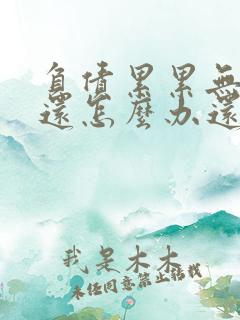 負債累累無
還怎麼办還
我是木木
未经同意禁止搭载